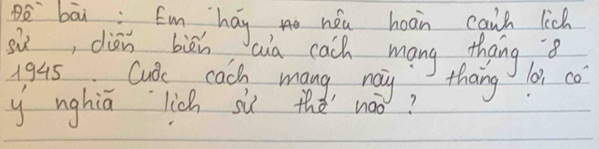 Đề bài : Em hãy nêu hoàn cảnh lịch
sử , diễn biến của cách mạng tháng 8
1945 . Cuộc cách mạng này thắng lợi có
ý nghĩa lịch sử thế nào ?